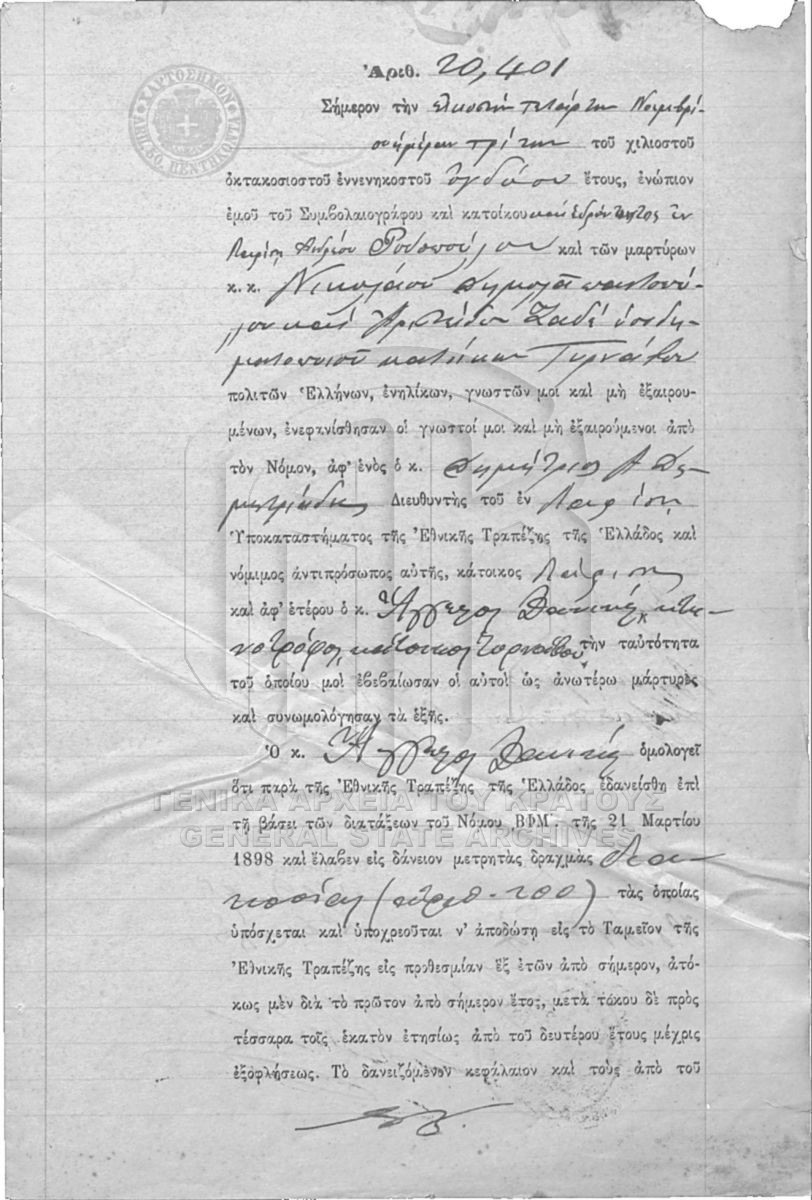 ΧΑΡΤΟΣΗΜΟΝ
Ἀριθ. 20,401
Σήμερον τὴν εἰκοστὴν τετάρτην Νοεμβρί-
ου ἡμέραν τρίτην τοῦ χιλιοστοῦ
ὀκτακοσιοστοῦ ἐννενηκοστοῦ ὀγδόου ἔτους, ἐνώπιον
ἐμοῦ τοῦ Συμβολαιογράφου καὶ κατοίκου καὶ ἑδρεύοντος ἐν
Λαρίσῃ Ἀνδρέου Ροδοπούλου καὶ τῶν μαρτύρων
κ. κ. Νικολάου
λου καὶ Ἀριστείδου ὑποδη-
ματοποιοῦ κατοίκων Τυρνάβου
πολιτῶν Ἑλλήνων, ἐνηλίκων, γνωστῶν μοι καὶ μὴ ἐξαιρου-
μένων, ἐνεφανίσθησαν οἱ γνωστοί μοι καὶ μὴ ἐξαιρούμενοι ἀπὸ
τὸν Νόμον, ἀφ' ἑνὸς ὁ κ. Δημήτριος Α Δη-
μητριάδης Διευθυντὴς τοῦ ἐν Λαρίσῃ
Ὑποκαταστήματος τῆς Ἐθνικῆς Τραπέζης τῆς Ἑλλάδος καὶ
νόμιμος ἀντιπρόσωπος αὐτῆς, κάτοικος Λαρίσης
καὶ ἀφ' ἑτέρου ὁ κ. Ἄγγελος κτη-
νοτρόφος, κάτοικος Τυρνάβου τὴν ταὐτότητα
τοῦ ὁποίου μοὶ ἐβεβαίωσαν οἱ αὐτοὶ ὡς ἀνωτέρω μάρτυρες
καὶ συνωμολόγησαν τὰ ἑξῆς.
Ὁ κ. Ἄγγελος ὁμολογεῖ
ὅτι παρὰ τῆς Ἐθνικῆς Τραπέζης τῆς Ἑλλάδος ἐδανείσθη ἐπὶ
τῇ βάσει τῶν διατάξεων τοῦ Νόμου ΒΦΜ'. τῆς 21 Μαρτίου
ΓΕΝΙΚΑ ΑΡΧΕΙΑ ΤΟΥ ΚΡΑΤΟΥΣ
GENERAL STATE ARCHIVES
1898 καὶ ἔλαβεν εἰς δάνειον μετρητὰς δραχμὰς δια-
κοσίας (ἀριθ. 200) τὰς ὁποίας
ὑπόσχεται καὶ ὑποχρεοῦται ν' ἀποδώσῃ εἰς τὸ Ταμεῖον τῆς
Ἐθνικῆς Τραπέζης εἰς προθεσμίαν ἓξ ἐτῶν ἀπὸ σήμερον, ἀτό-
κως μὲν διὰ τὸ πρῶτον ἀπὸ σήμερον ἔτος, μετὰ τόκου δὲ πρὸς
τέσσαρα τοῖς ἑκατὸν ἐτησίως ἀπὸ τοῦ δευτέρου ἔτους μέχρις
ἐξοφλήσεως. Τὸ δανειζόμενον κεφάλαιον καὶ τοὺς ἀπὸ τοῦ